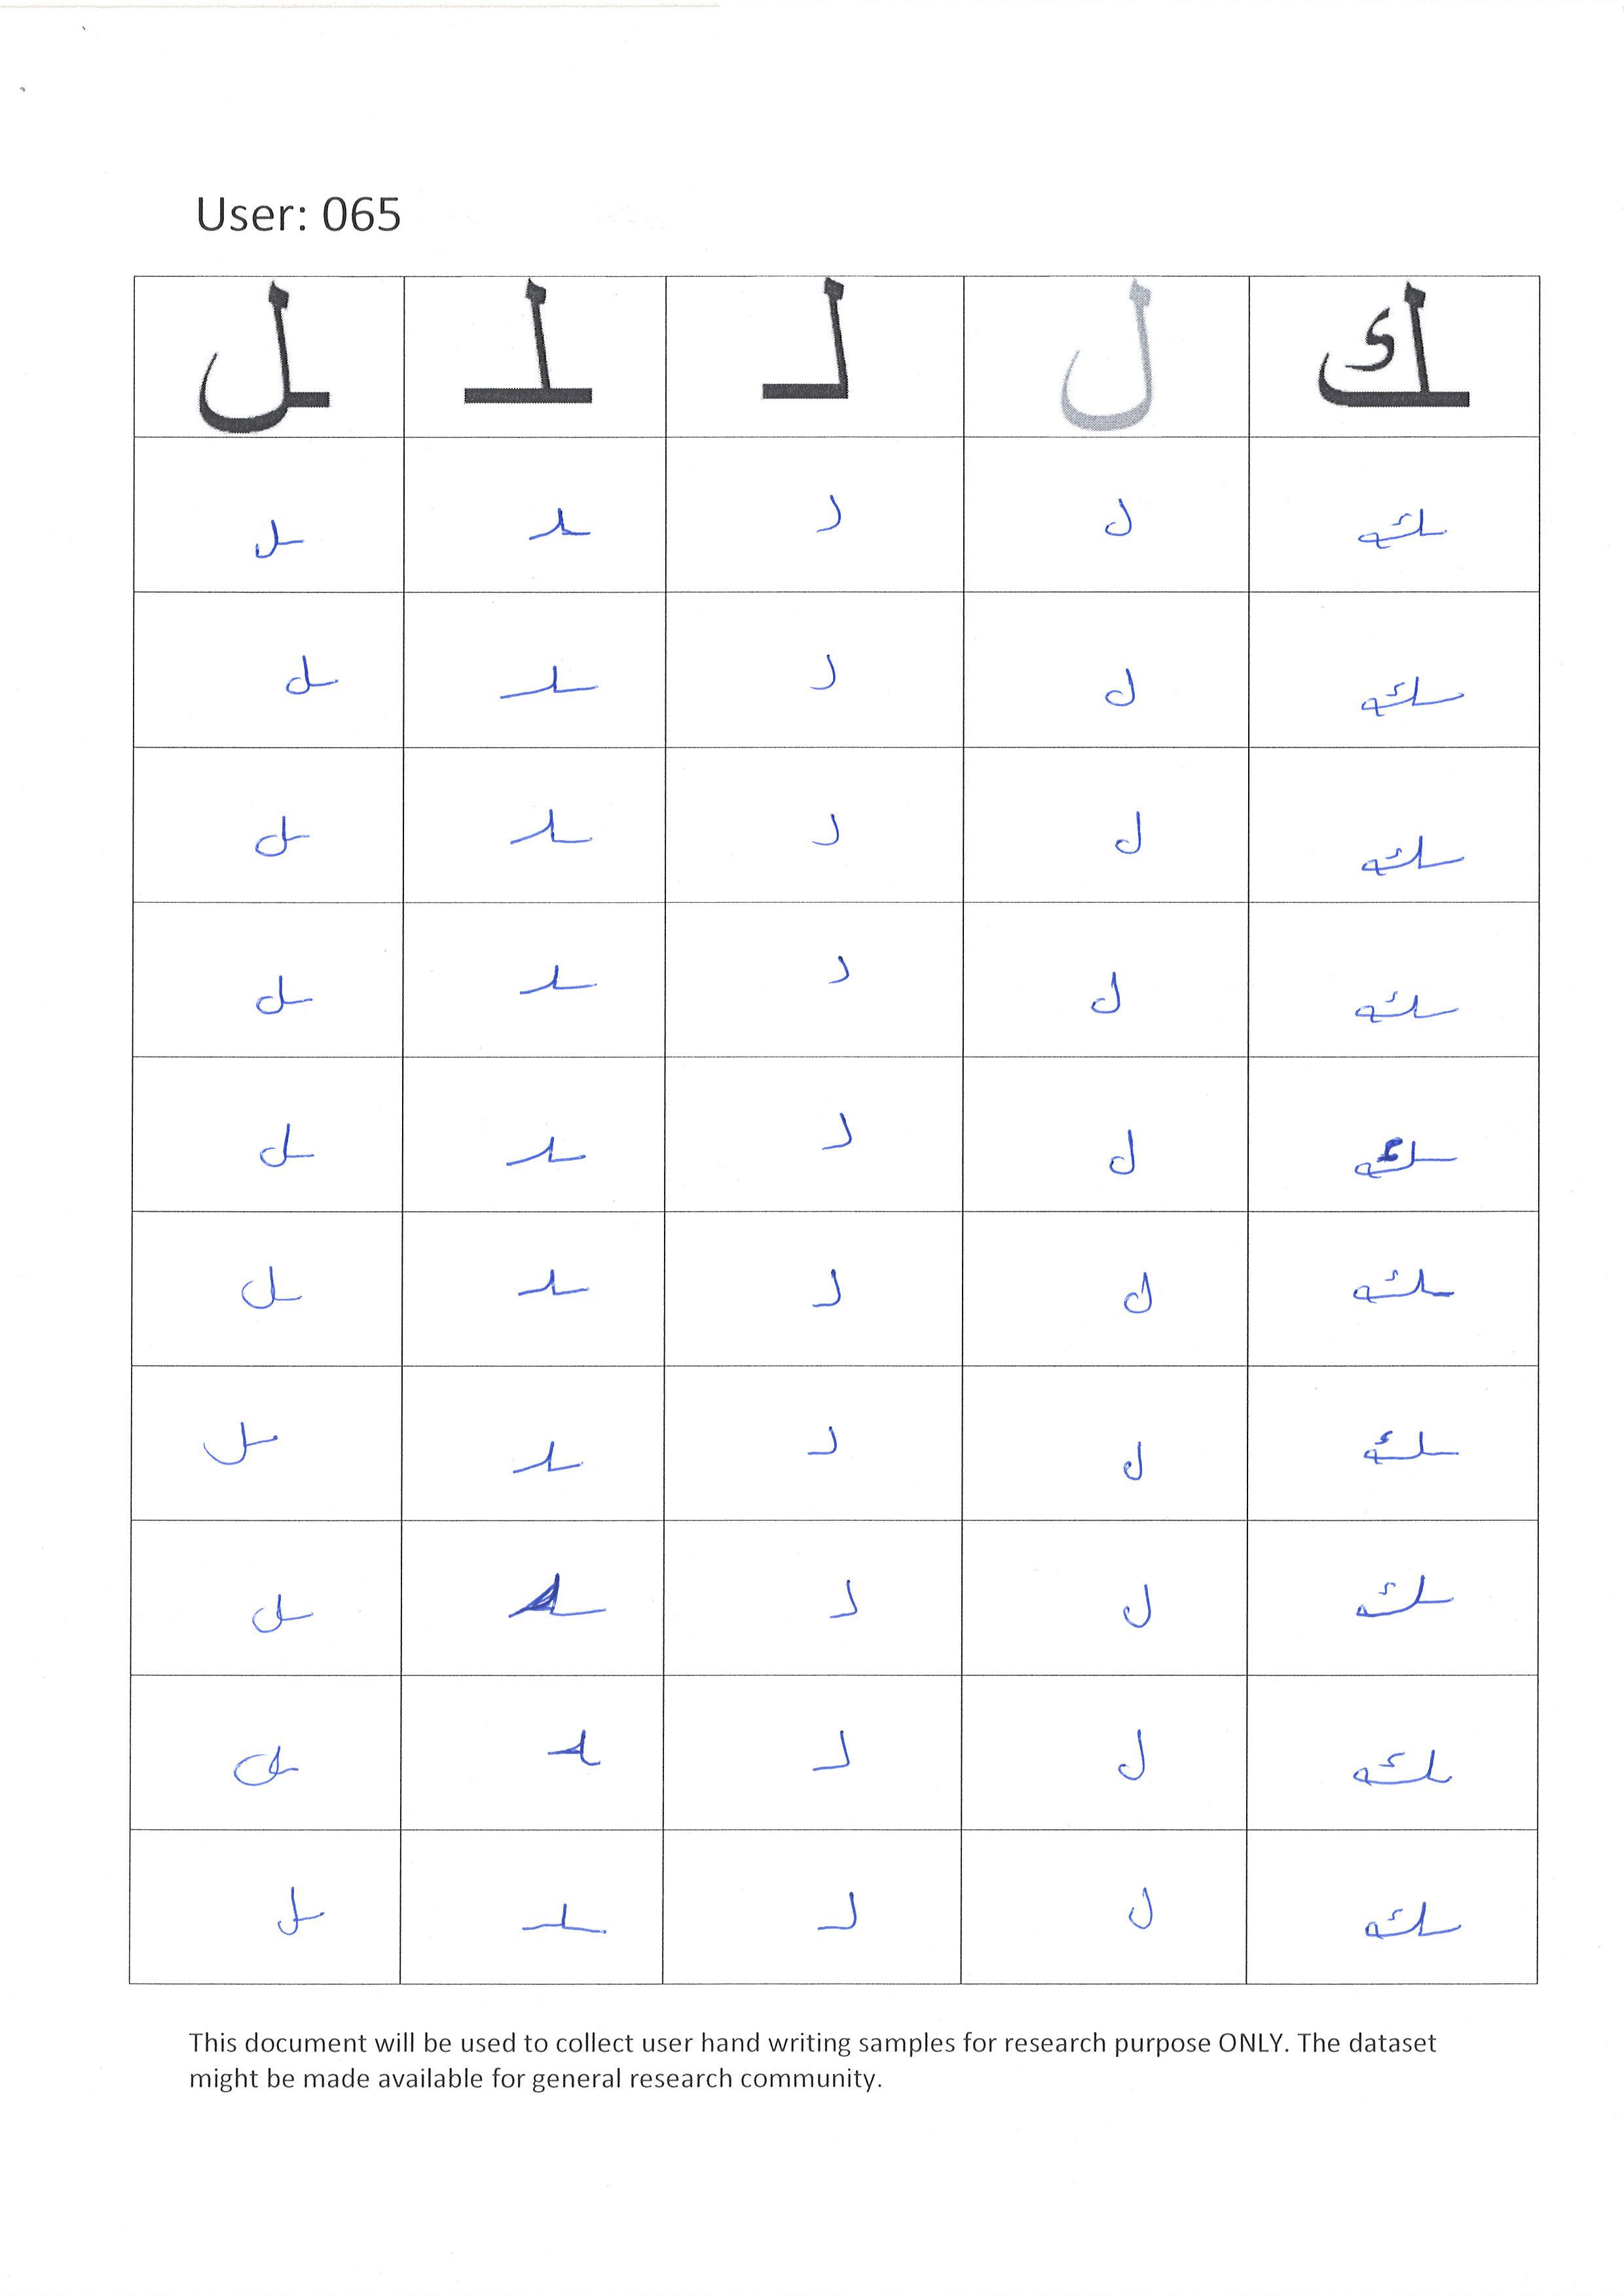 User: 065
ـل ـلـ لـ ل ـك
ـل ـلـ لـ ل ـك
ـل ـلـ لـ ل ـك
ـل ـلـ لـ ل ـك
ـل ـلـ لـ ل ـك
ـل ـلـ لـ ل ـك
ـل ـلـ لـ ل ـك
ـل ـلـ لـ ل ـك
ـل ـلـ لـ ل ـك
ـل ـلـ لـ ل ـك
ـل ـلـ لـ ل ـك
This document will be used to collect user hand writing samples for research purpose ONLY. The dataset
might be made available for general research community.